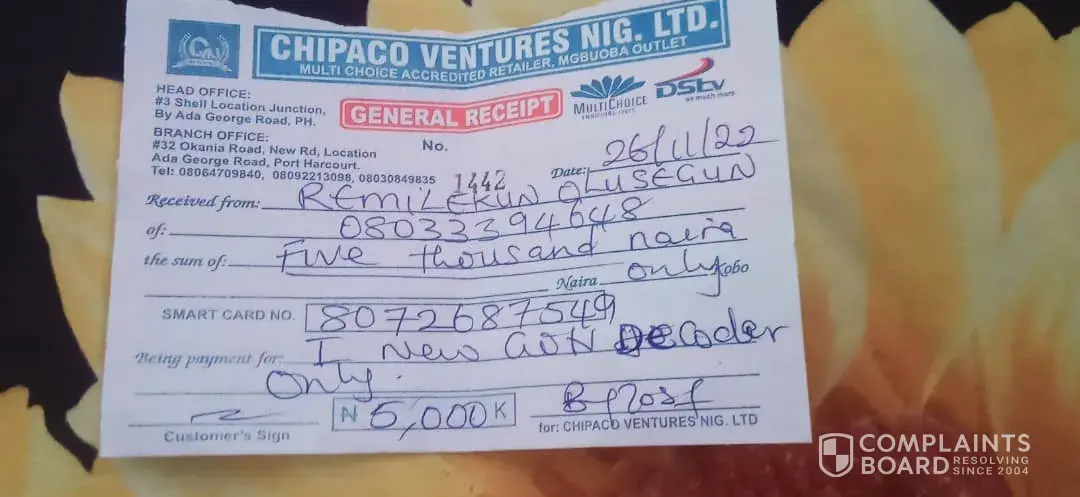 CHIPACO VENTURES NIG. LTD.
MULTI CHOICE ACCREDITED RETAILER, MGBUOBA OUTLET
HEAD OFFICE:
#3 Shell Location Junction,
By Ada George Road, PH.
BRANCH OFFICE:
#32 Okania Road, New Rd, Location
Ada George Road, Port Harcourt.
Tel: 08064709840, 08092213098, 08030849835
GENERAL RECEIPT
MULTICHOICE
ENRICHING LIVES
DStv
so much more
No. 1442
Date: 26/11/22
Received from: REMILEKUN OLUSEGUN
of: 08033394648
the sum of: Five thousand naira
only Naira Kobo
SMART CARD NO. 8072687549
Being payment for: I New GOtv Decoder
Only.
₦ 5,000 K
Customer's Sign
for: CHIPACO VENTURES NIG. LTD
COMPLAINTS
BOARD RESOLVING
SINCE 2004